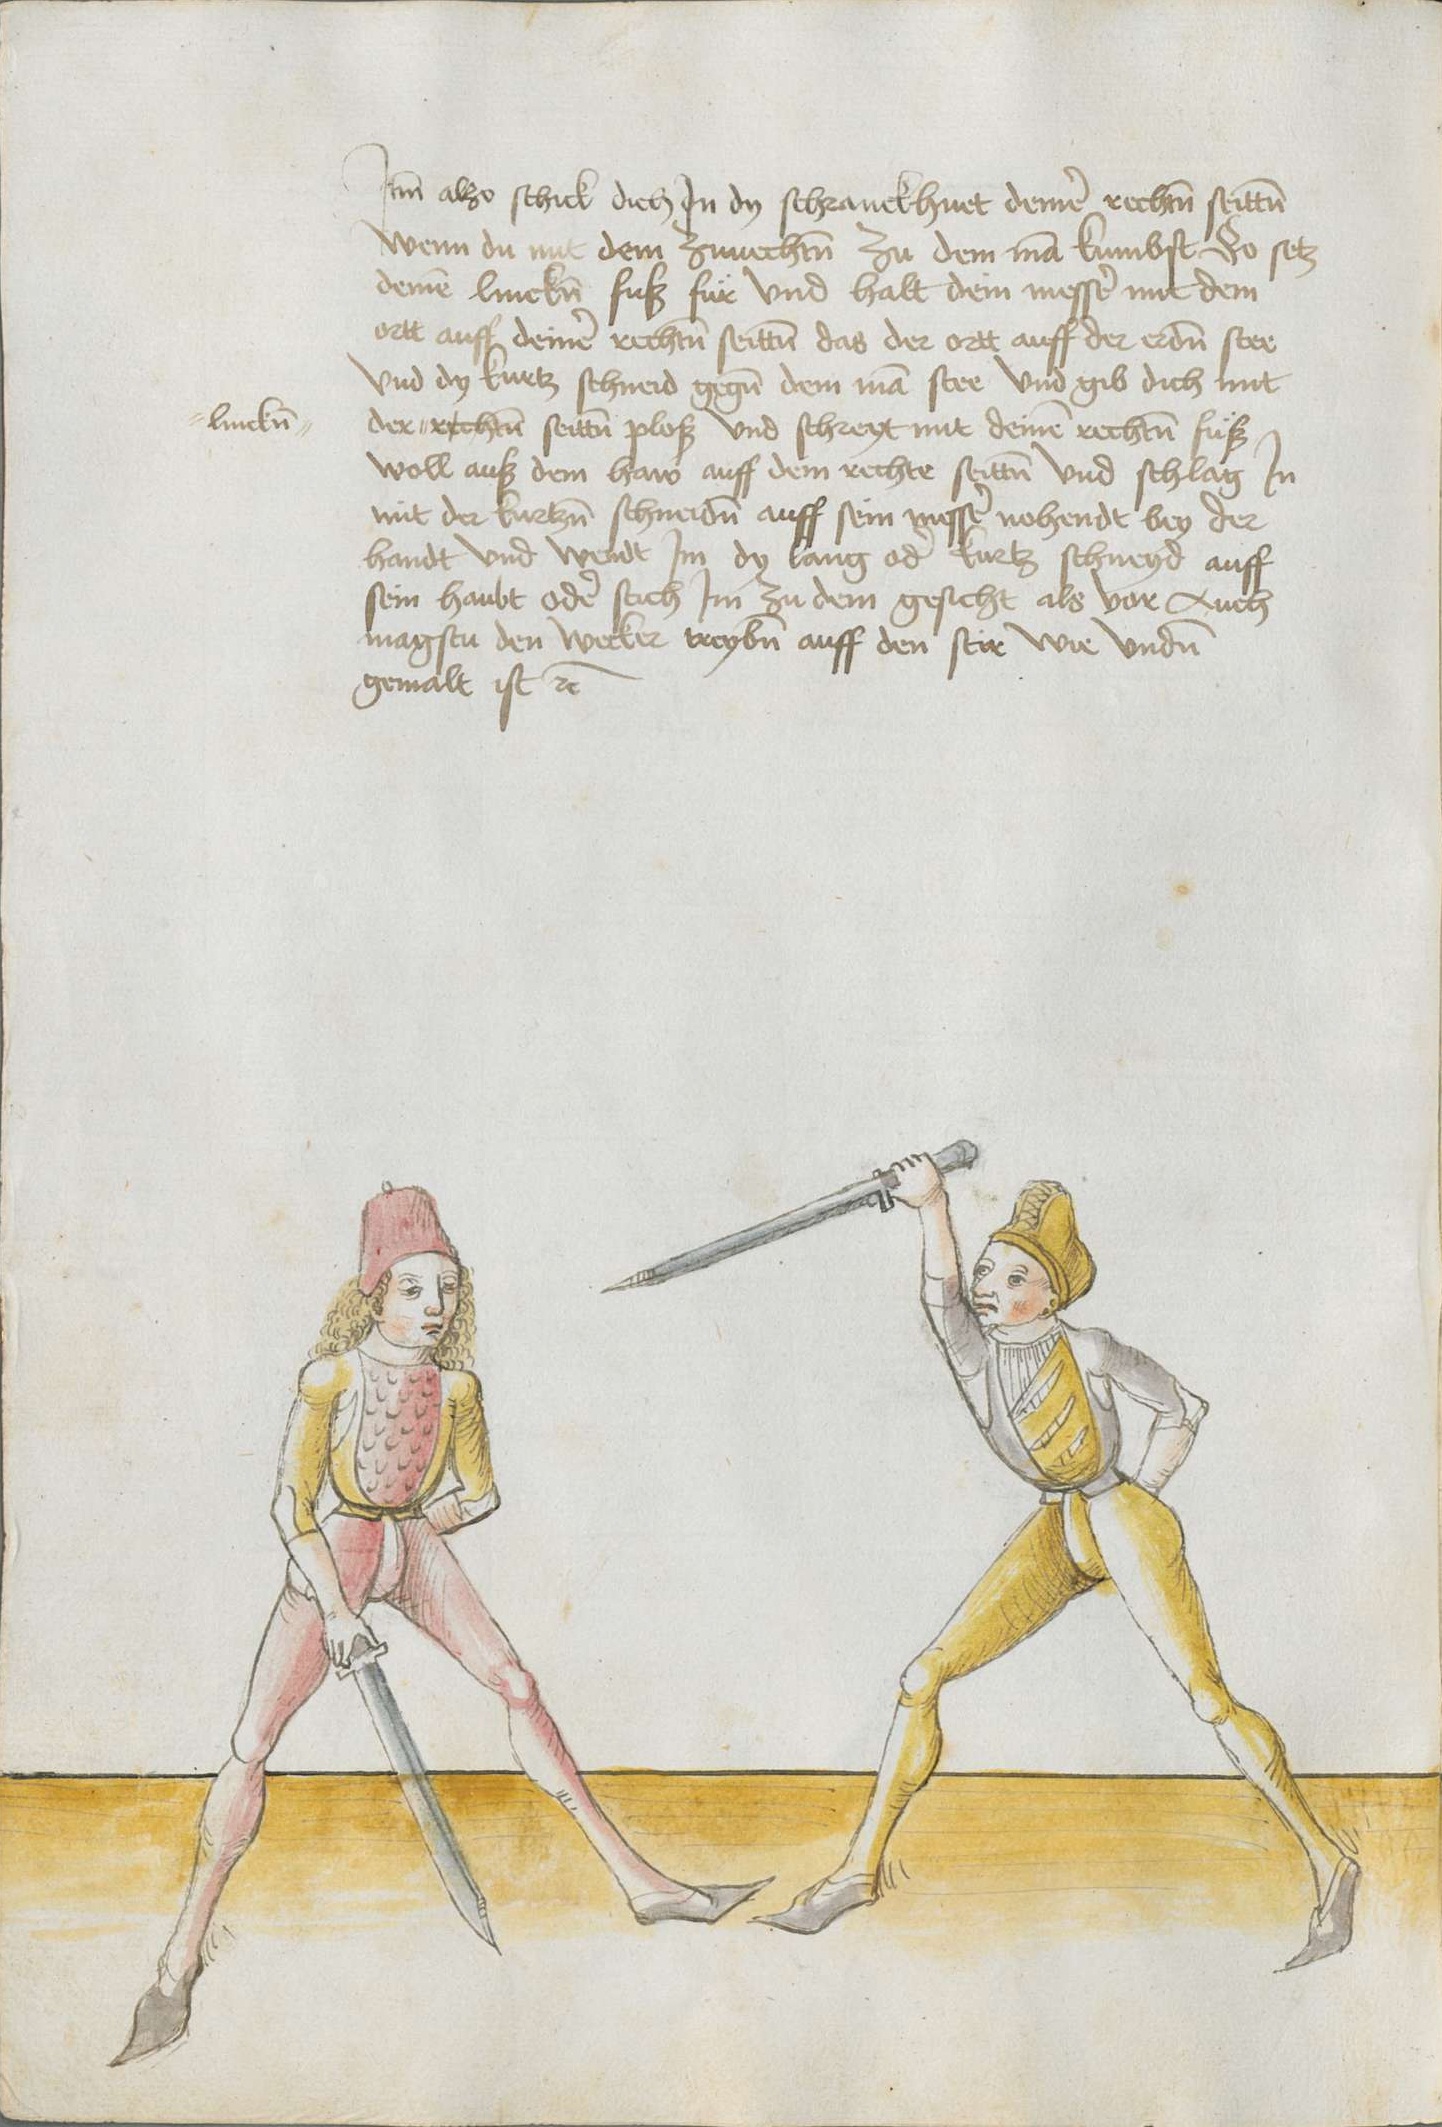 Itm̄ also schick dich In dy schranckhuet deinē rechtn̄ seittn̄
Wenn du mit dem Zuuechtn̄ Zu dem mā kumbst So setz
deinē linckn̄ fuß für Vnd halt dein messē mit dem
ortt auff deinē rechtn̄ seittn̄ das der ortt auff der erdn̄ stee
Vnd dy kurtz schneid gegn̄ dem mā stee Vnd gib dich mit
linckn̄
der rechtn̄ seittn̄ ploß Vnd schreyt mit deinē rechtn̄ füß
woll auß dem haw auff dem rechte seittn̄ Vnd schlag In
mit der kurtzn̄ schneidn̄ auff sein messē nohendt bey der
handt Vnd Wendt Im dy lang od̄ kurtz schneyd auff
sein haubt odē stich Im Zu dem gesicht als vor Auch
magstu den Wecker treybn̄ auff den stir Wie Vndn̄
gemalt ist